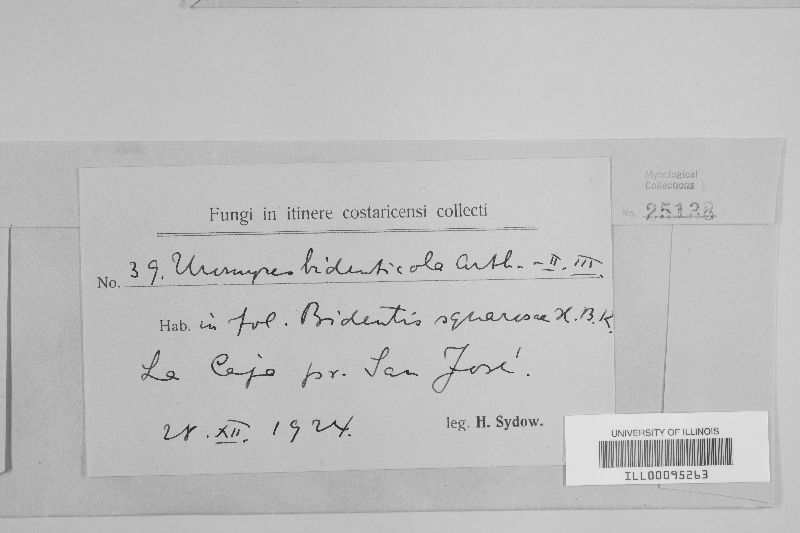 Fungi in itinere costaricensi collecti
Mycological
Collections
No. 25138
No. 39. Uromyces bidenticola Arth. - II. III.
Hab. in fol. Bidentis squarrosae H.B.K.
La Caja pr. San José.
28. XII. 1924.
leg. H. Sydow.
UNIVERSITY OF ILLINOIS
ILL00095263